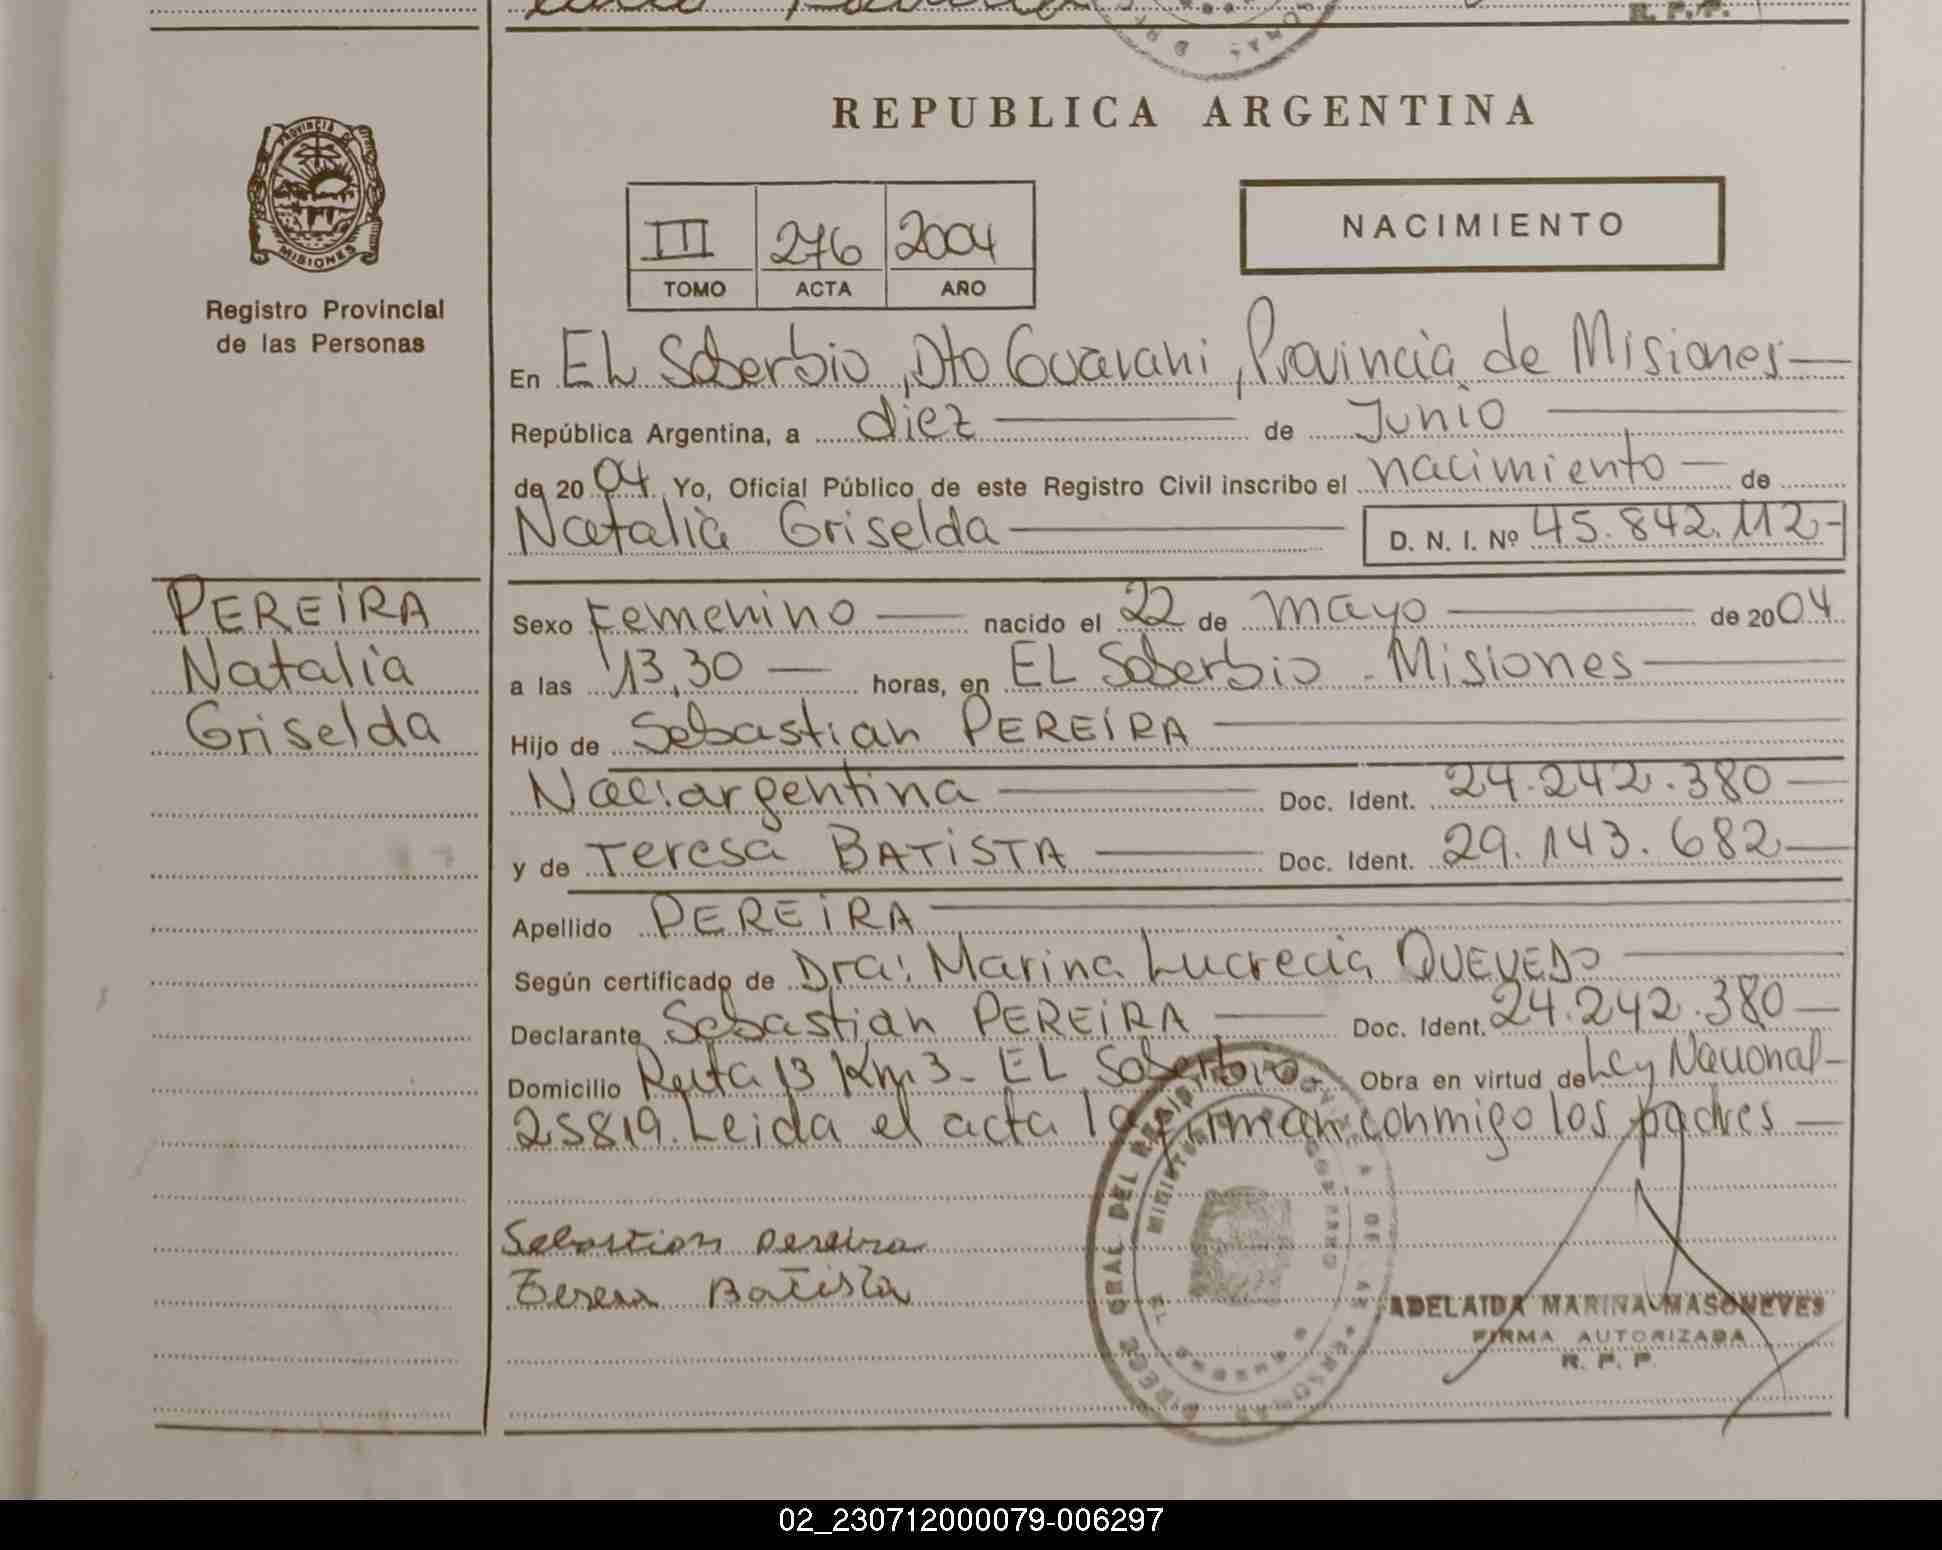 R. P. P.
REPUBLICA ARGENTINA
PROVINCIA DE
MISIONES
Registro Provincial
de las Personas
III 276 2004
TOMO ACTA AÑO
NACIMIENTO
En EL Soberbio, Dto Guarani, Provincia de Misiones
República Argentina, a diez de Junio
de 2004 Yo, Oficial Público de este Registro Civil inscribo el nacimiento de
Natalia Griselda D. N. I. Nº 45.842.112-
PEREIRA
Natalia
Griselda
Sexo Femenino nacido el 22 de mayo de 2004
a las 13,30 horas, en EL Soberbio - Misiones
Hijo de Sebastian PEREIRA
Nac: argentina Doc. Ident. 24.242.380
y de Teresa BATISTA Doc. Ident. 29.143.682
Apellido PEREIRA
Según certificado de Dra: Marina Lucrecia QUEVEDO
Declarante Sebastian PEREIRA Doc. Ident. 24.242.380
Domicilio Ruta 13 Km 3 - EL Soberbio Obra en virtud de Ley Nacional
25819. Leida el acta la firman conmigo los padres
Sebastian Pereira
Teresa Batista
ADELAIDA MARINA MASONEVES
FIRMA AUTORIZADA
R. P. P.
02_230712000079-006297